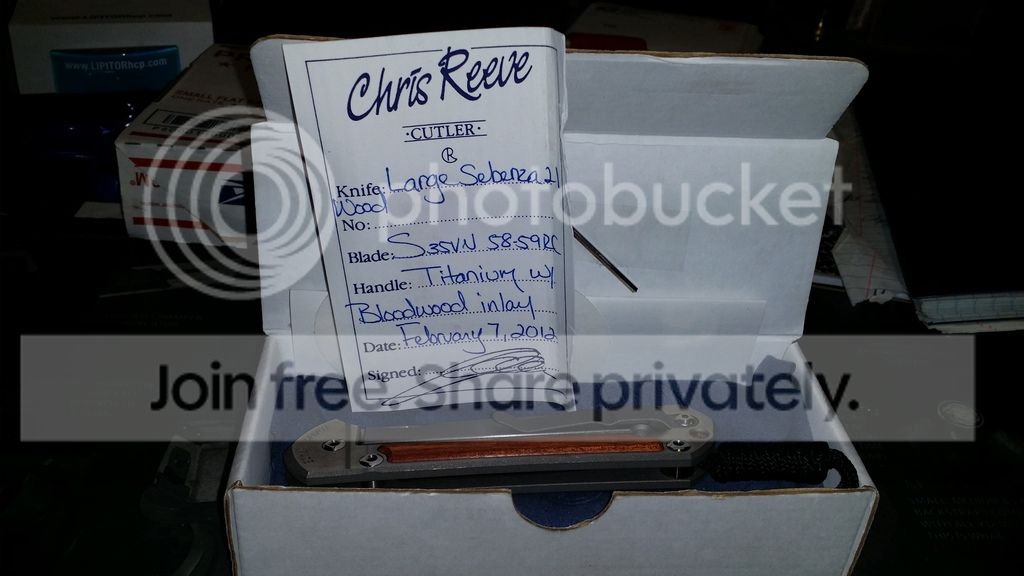 www.LIPITORhcp.com
SMALL FLAT
Chris Reeve
·CUTLER·
®
Knife: Large Sebenza 21
Wood
No:
Blade: S35VN 58-59RC
Handle: Titanium w/
Bloodwood inlay
Date: February 7, 2012
Signed:
photobucket
Join free. Share privately.